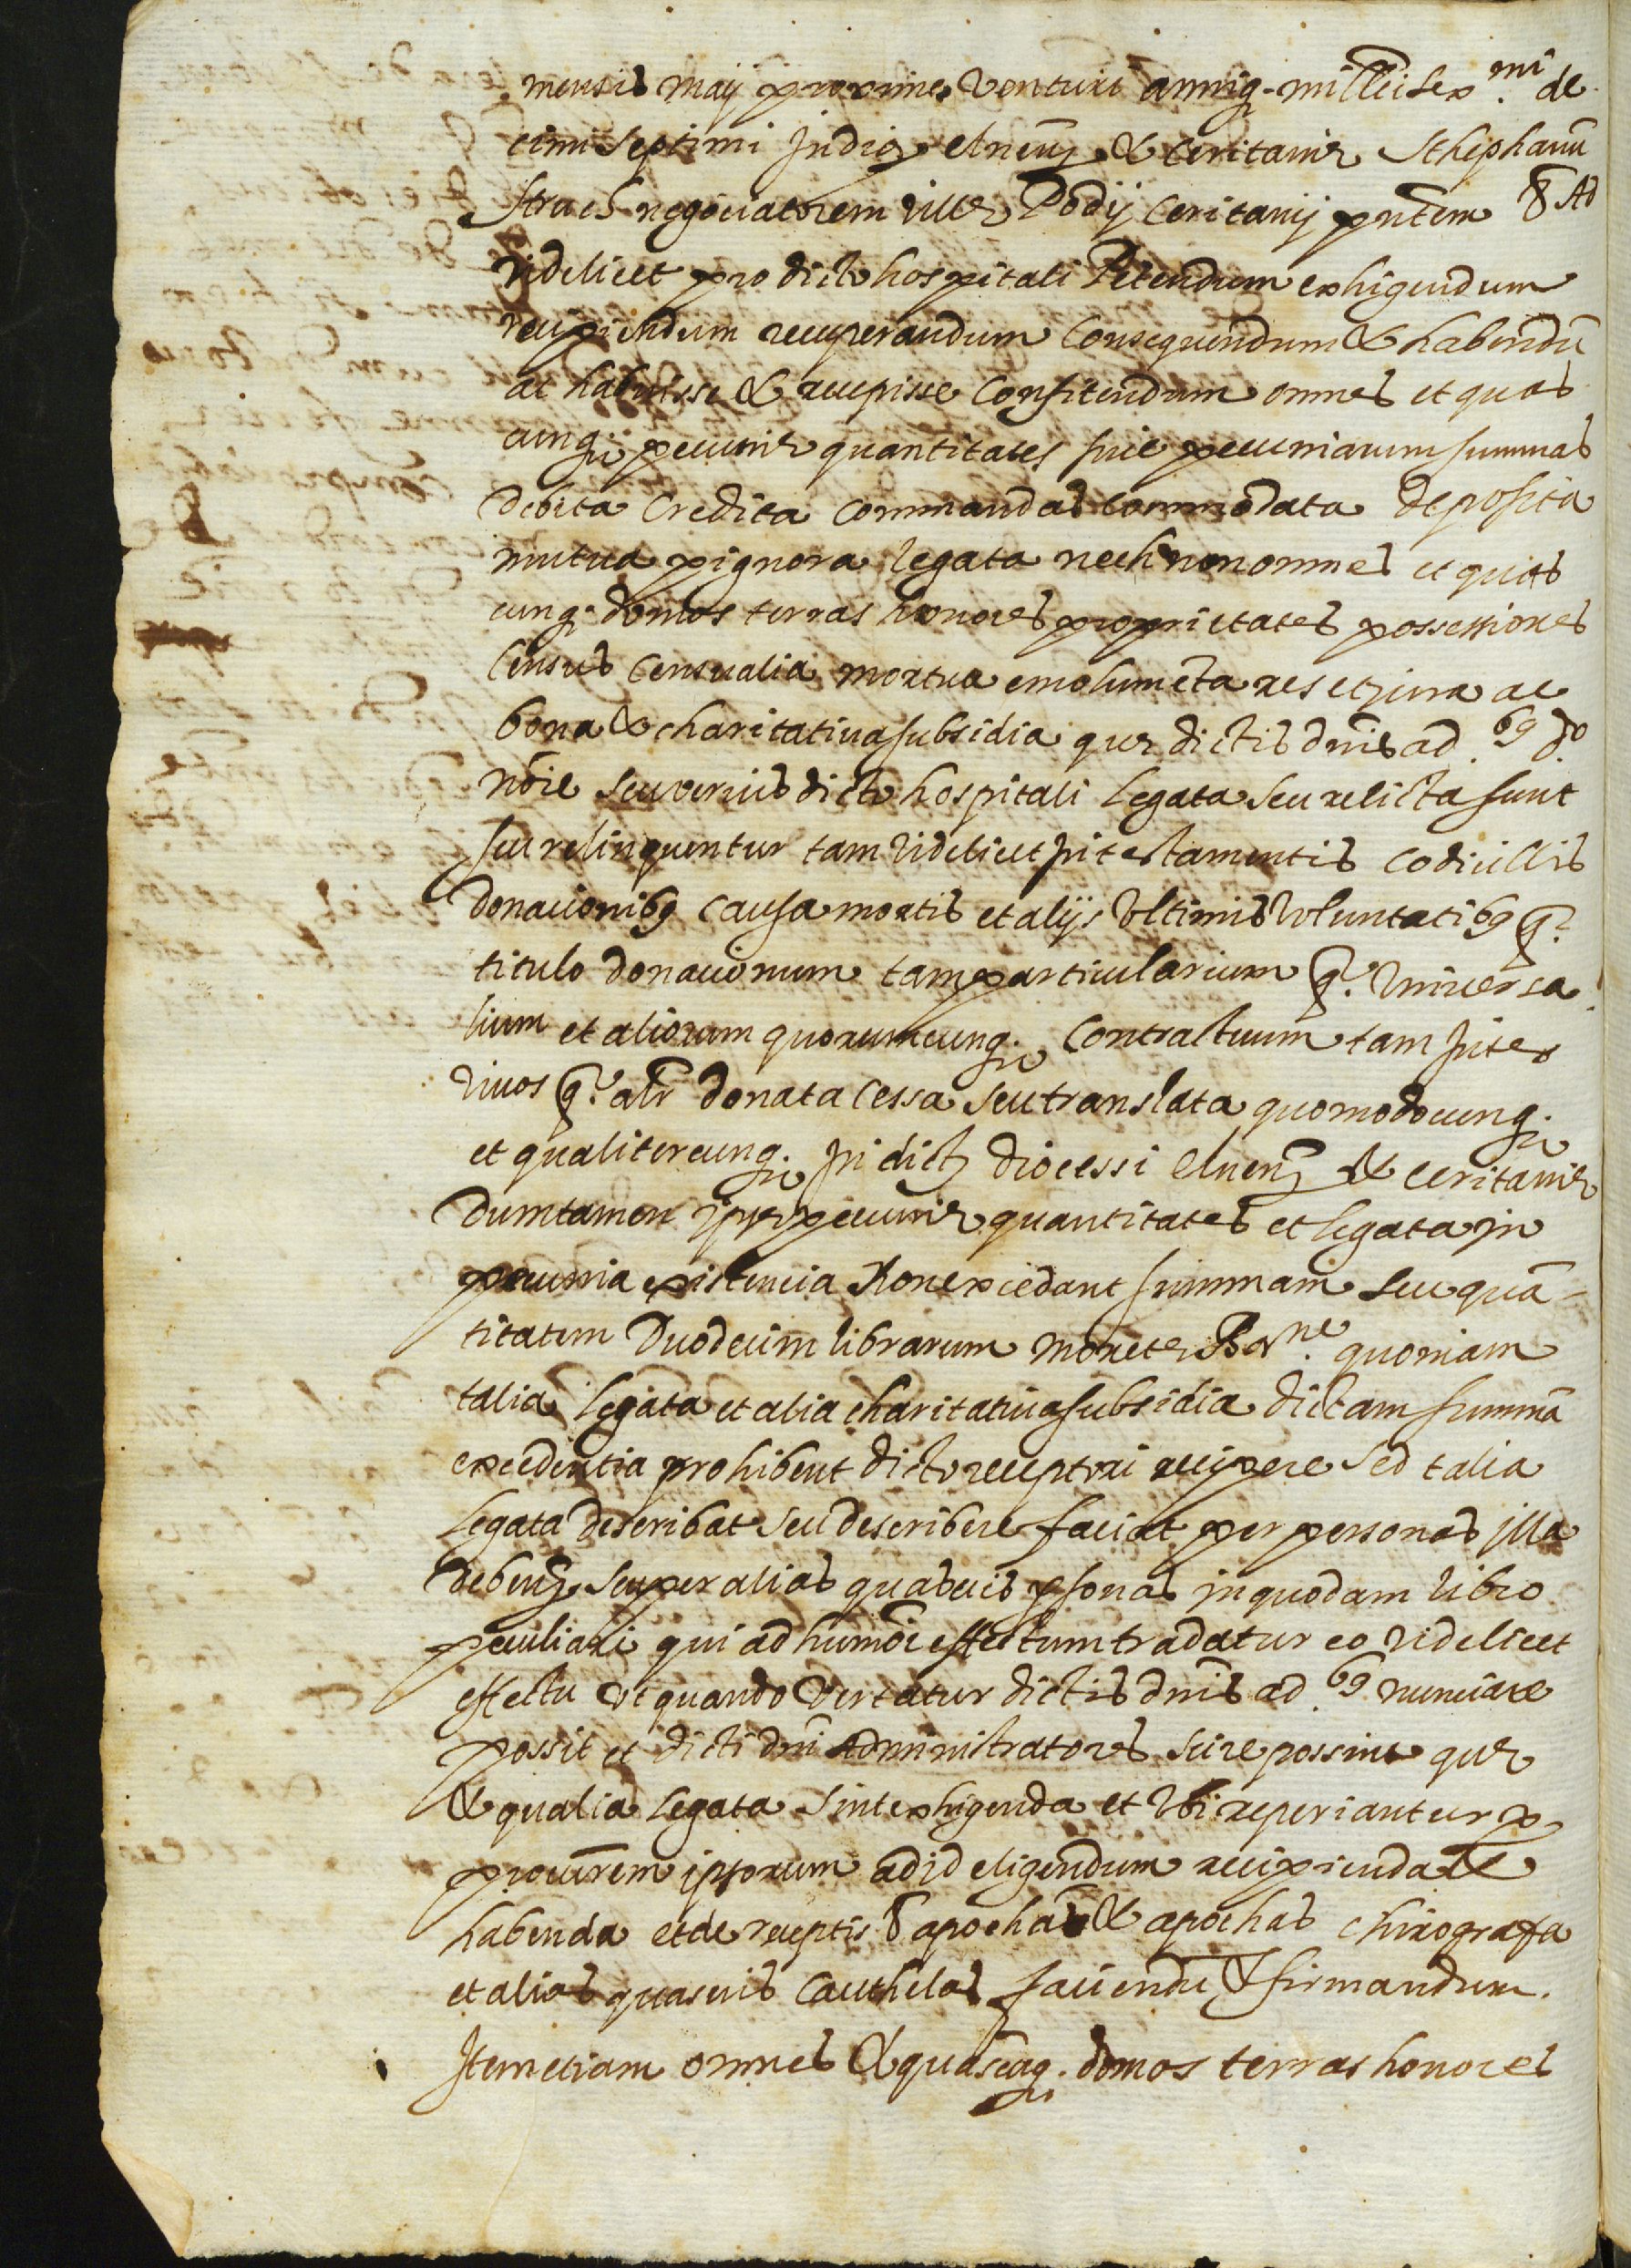 mensis maij proxime venturi anniq. millisex.mi de
cimi septimi in dioz elnen̄ & ceritaniæ sthephanū
straes negociatorem villæ Podij ceritanij pn̄tem & Ad
videlicet pro dicto hospitali Petendum exhigendum
recipiendum recuperandum consequendum & habendū
ac habuisse & recepisse confitendum omnes et quas
cunq. pecuniæ quantitates sive pecuniarum summas
debita credita commandas commodata deposita
mutua pignora legata nech non omnes et quas
cunq. domos terras honores proprietates possessiones
census censualia mortua emolumēta res et jura ac
bona & charitativa subsidia quæ dictis dn̄is ad.bꝰ do.
nōīe seu verius dicto hospitali legata seu relicta sunt
seu relinquentur tam videlicet in testamentis codicillis
donacionibꝰ causa mortis et alijs ultimis voluntatibꝰ q.
titulo donacionum tam particularium q. universa
lium et aliorum quorumcunq. contractuum tam inter
vivos q. alr̄ donata cessa seu translata quomodocunq.
et qualitercunq. in dict diocessi elnen̄ & ceritaniæ
dumtamen ipsæ pecuniæ quantitates et legata in
pecunia existencia Non excedant summam seu quā-
titatem Duodecim librarum monetæ Bar.ne quoniam
talia legata et alia charitativa subsidia dictam summā
excedentia prohibent dicto receptori recipere sed talia
legata describat seu describere faciat per personas illa
deben̄ seu per alias quasvis p̱sonas in quodam libro
peculiari qui ad humōi effectum tradatur eo videlicet
effectu ut quando vertatur dictis dn̄is ad.bꝰ nunciare
possit et dicti dn̄i Administratores scire possint quæ
& qualia legata sint exhigenda et ubi reperiantur p̱
procurēm ipsorum ad id eligendum recipienda &
habenda et de receptis & apochas & apochas chirografa
et alias quasvis cauthelas faciendū & firmandum.
Item etiam omnes & quascūq. domos terras honores